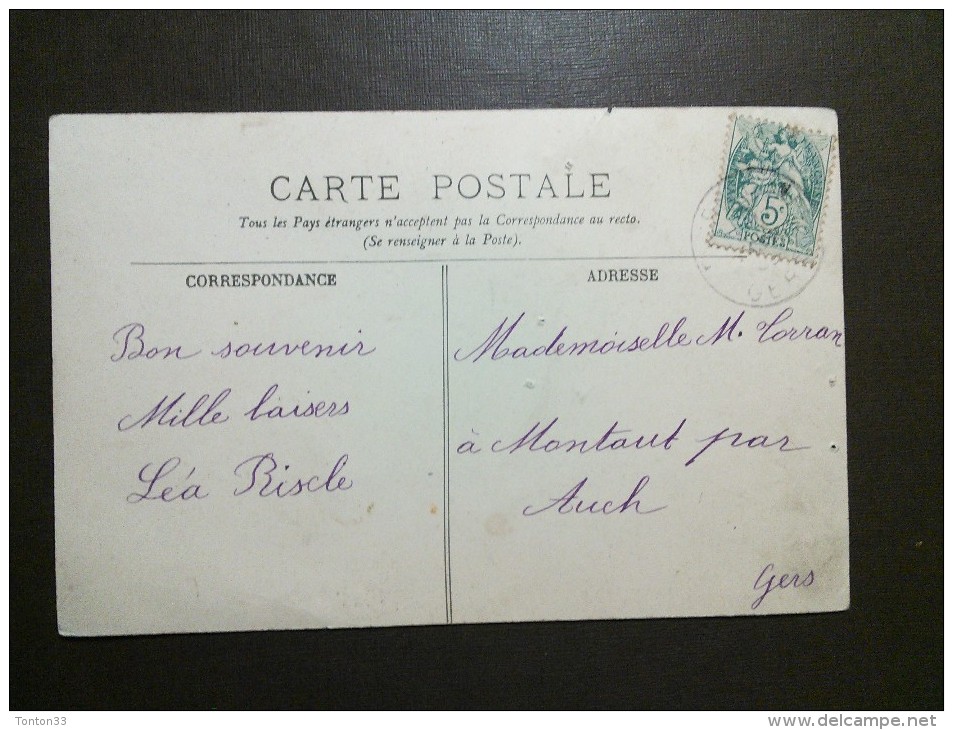 CARTE POSTALE
Tous les Pays étrangers n'acceptent pas la Correspondance au recto.
(Se renseigner à la Poste).
CORRESPONDANCE
Bon souvenir
Mille baisers
Léa Riscle
ADRESSE
Mademoiselle M. Torran
à Montaut par
Auch
Gers
5c
POSTES
GERS
Tonton33
www.delcampe.net